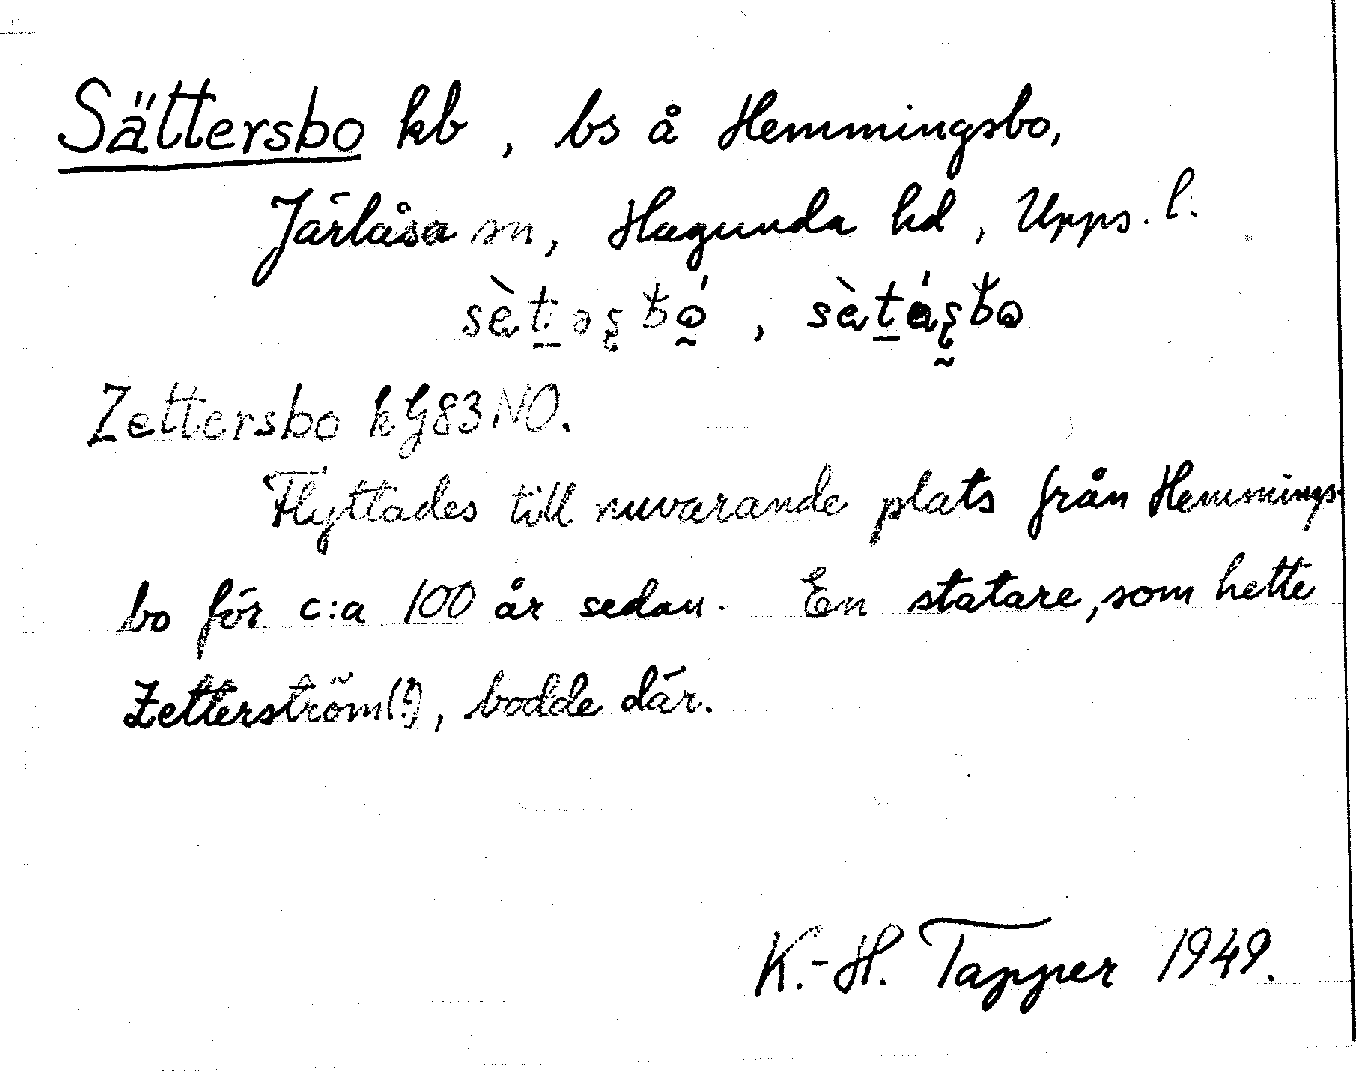 Sättersbo kb, bs å Hemmingsbo,
Järlåsa sn, Hagunda hd, Upps. l.
Zettersbo kG83NO.
Flyttades till nuvarande plats från Hemmings-
bo för c:a 100 år sedan. En statare, som hette
Zetterström(?), bodde där.
K.-H. Tapper 1949.